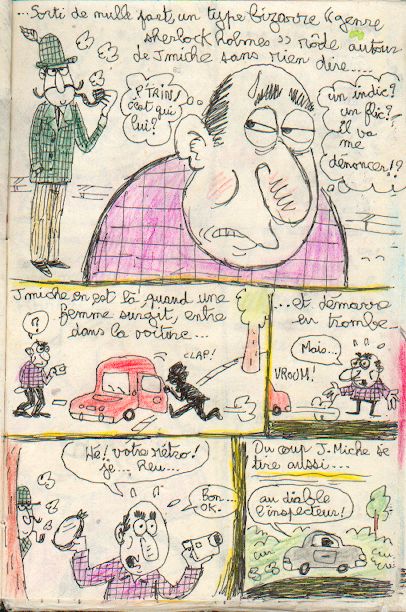 ...Sorti de nulle part, un type bizarre "genre
sherlock holmes" rôde autour
de J.miche sans rien dire....
P'TAIN!
c'est qui
lui?
un indic?
un flic?
il va
me
dénoncer!?
J.miche en est là quand une
femme surgit, entre
dans la voiture...
?
CLAP!
...et démarre
en trombe...
Mais...
VROUM!
Hé! votre rétro!
je... Heu...
Bon...
OK.
Du coup J.Miche se
tire aussi...
au diable
l'inspecteur!